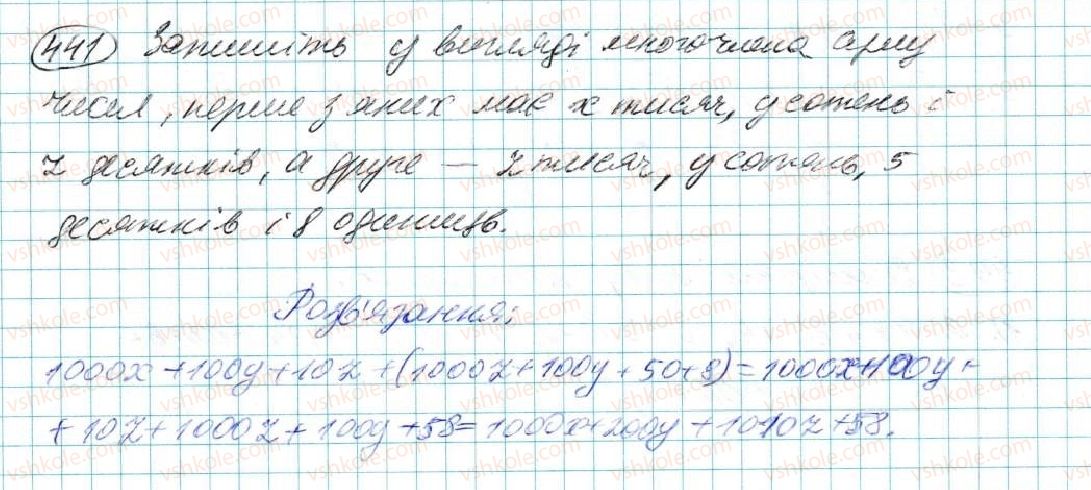 441 Запишіть у вигляді многочлена суму
чисел, перше з яких має x тисяч, y сотень і
z десятків, а друге — z тисяч, y сотень, 5
десятків і 8 одиниць.
Розв'язання:
1000x + 100y + 10z + (1000z + 100y + 50 + 8) = 1000x + 100y +
+ 10z + 1000z + 100y + 58 = 1000x + 200y + 1010z + 58.